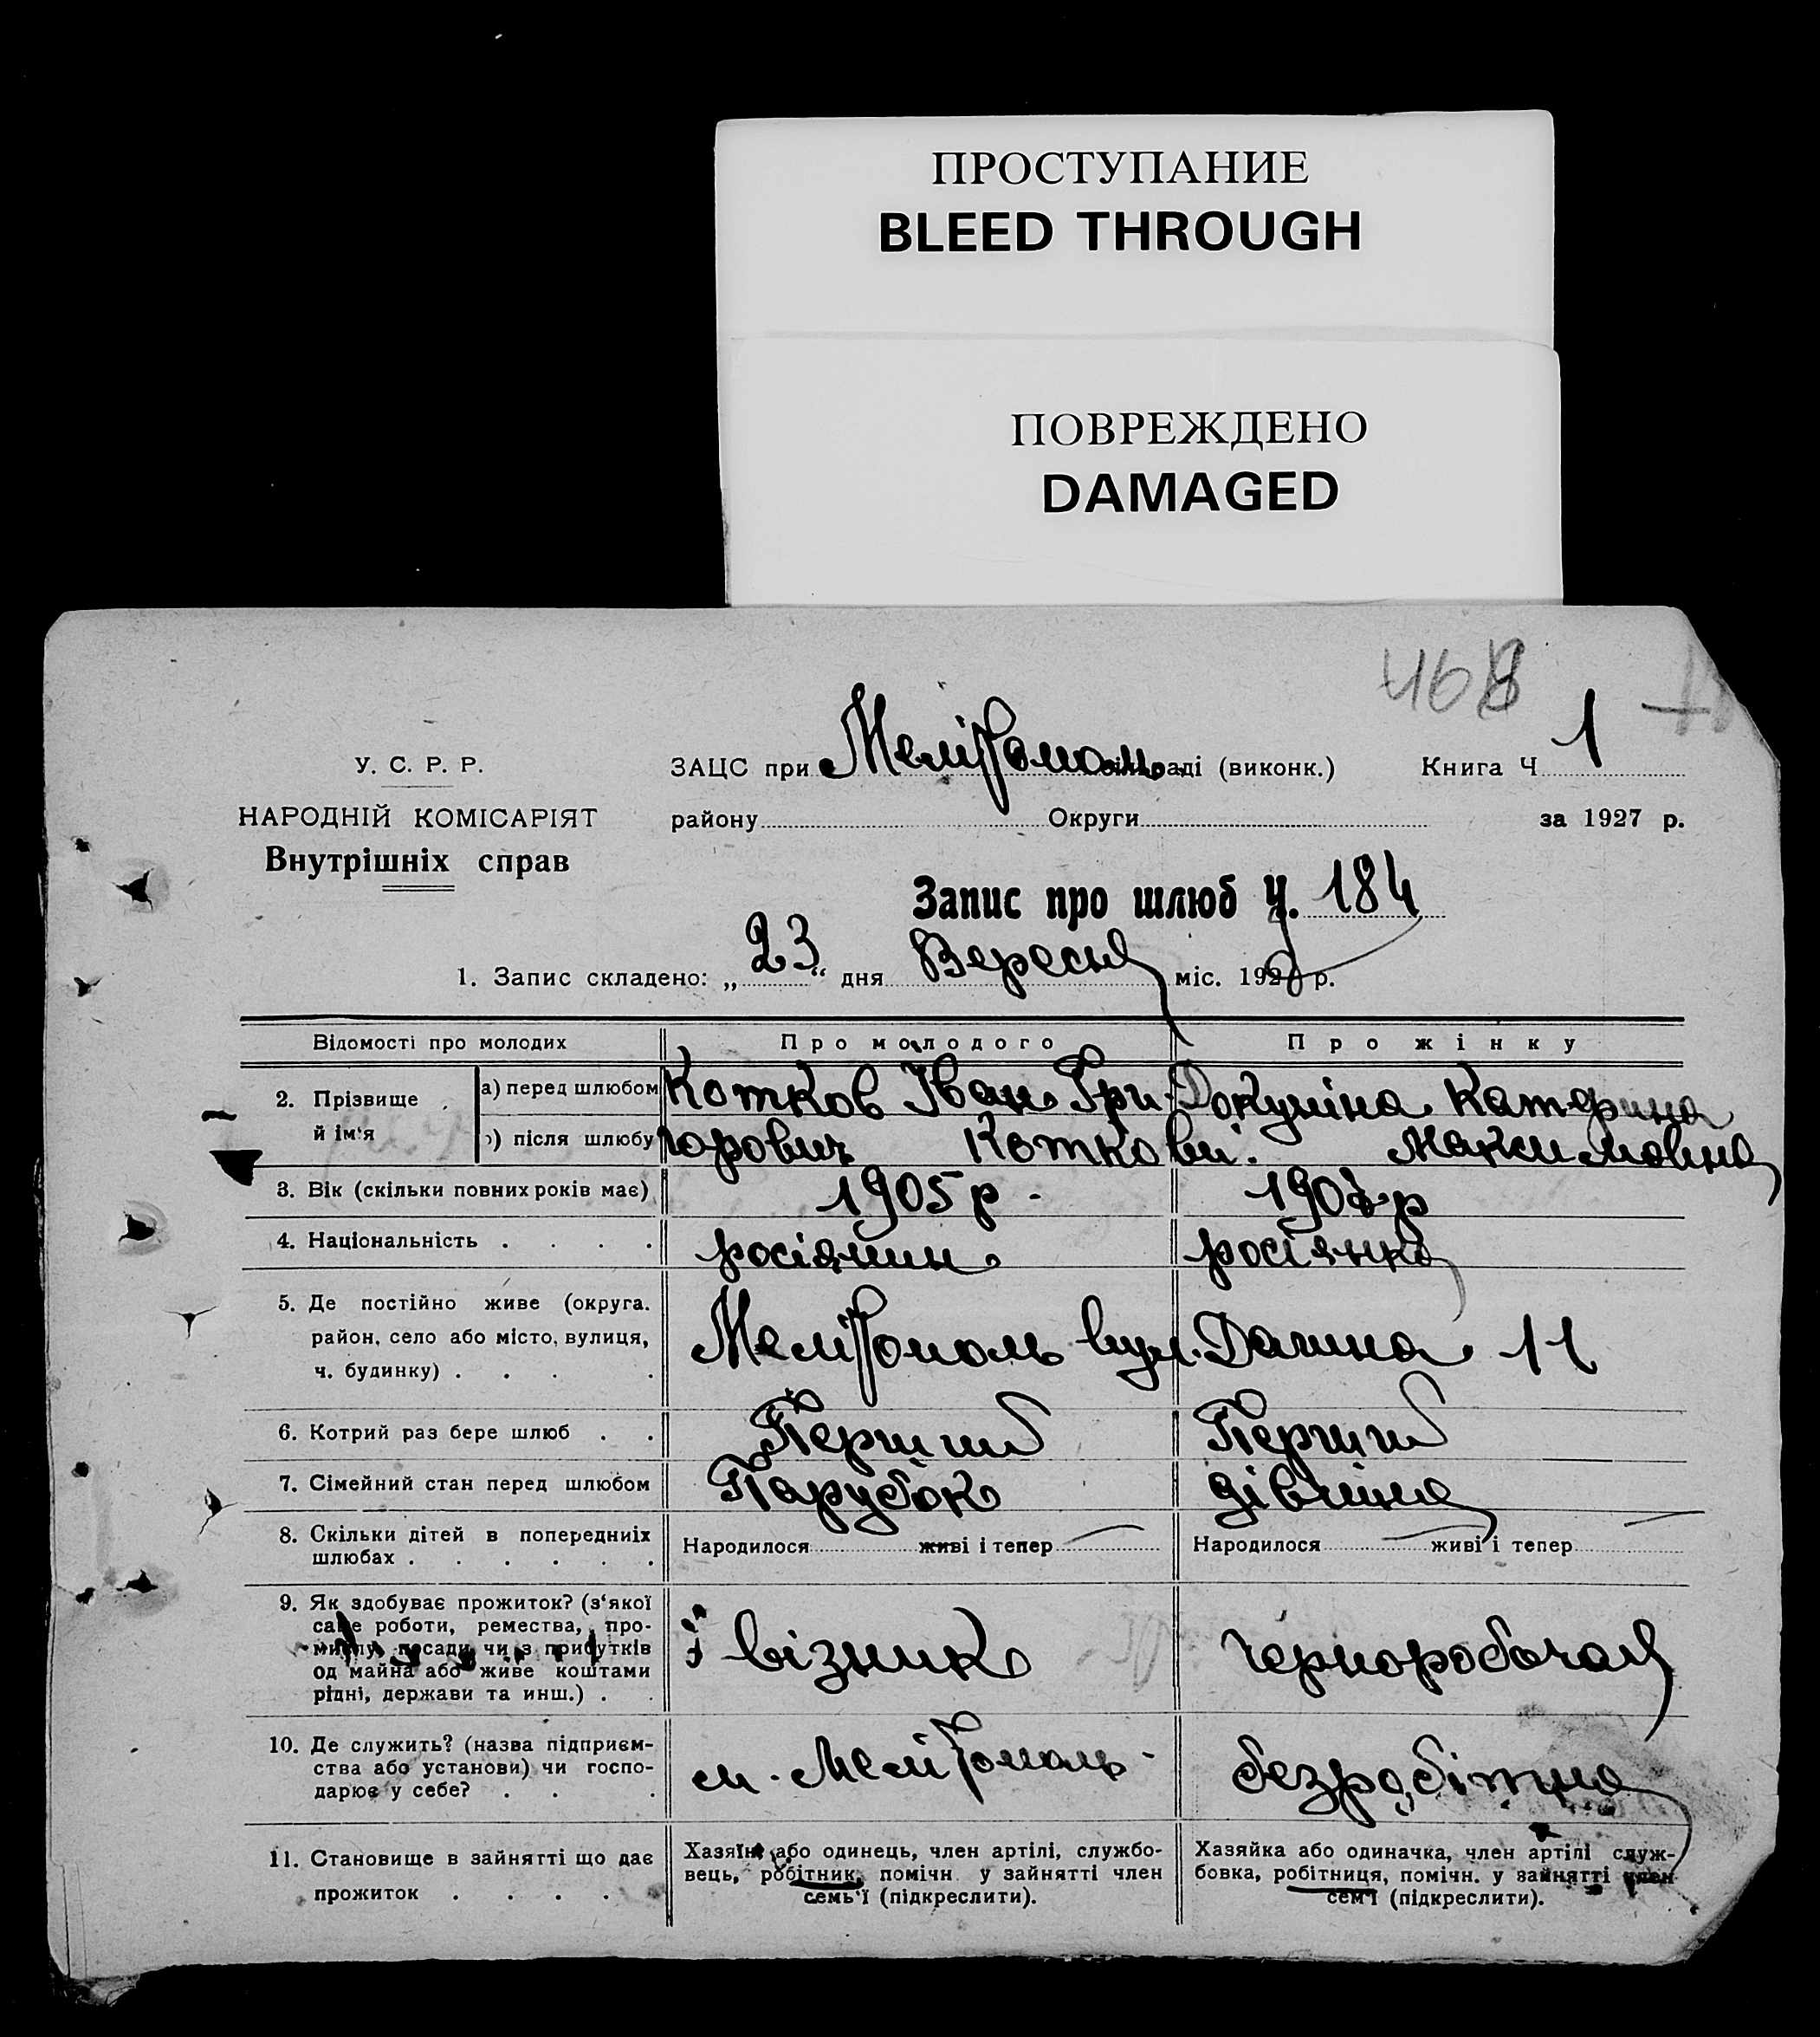 ПРОСТУПАНИЕ
BLEED THROUGH
ПОВРЕЖДЕНО
DAMAGED
468
У. С. Р. Р.
НАРОДНІЙ КОМІСАРІЯТ
Внутрішніх справ
ЗАЦС при Мелітополь раді (виконк.) Книга Ч 1
району Округи за 1927 р.
Запис про шлюб Ч. 184
1. Запис складено: „23“ дня Вересня міс. 192 р.
Відомості про молодих Про молодого Про жінку
2. Прізвище й ім'я
а) перед шлюбом Котков Іван Гри- Докуніна Катерина
б) після шлюбу горович Коткови. Макимовна
3. Вік (скільки повних років має) 1905 р. 1907 р
4. Національність росіянин росіянка
5. Де постійно живе (округа.
район, село або місто, вулиця,
ч. будинку) Мелітополь вул. 11
6. Котрий раз бере шлюб Перший Перший
7. Сімейний стан перед шлюбом Парубок дівчина
8. Скільки дітей в попередниіх
шлюбах Народилося живі і тепер Народилося живі і тепер
9. Як здобуває прожиток? (з'якої
саме роботи, ремества, про-
мислу, посади чи з прибутків
од майна або живе коштами
рідні, держави та инш.) візник чорноробочая
10. Де служить? (назва підприєм-
ства або установи) чи госпо-
дарює у себе? м. Мелітополь безробітна
11. Становище в зайнятті що дає
прожиток
Хазяїн або одинець, член артілі, службо-
вець, робітник, помічн. у зайнятті член
семь'ї (підкреслити).
Хазяйка або одиначка, член артілі служ-
бовка, робітниця, помічн. у зайнятті член
сем'ї (підкреслити).